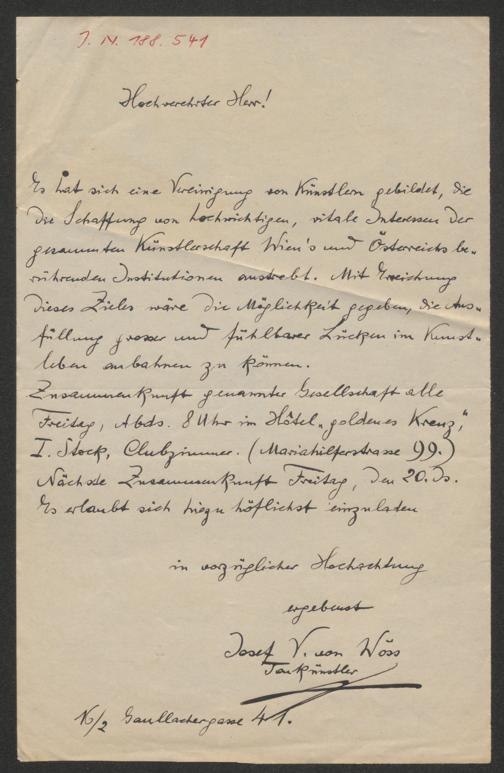 J. N. 188.541
Hochverehrter Herr!
Es hat sich eine Vereinigung von Künstlern gebildet, die
die Schaffung von hochwichtigen, vitale Interessen der
gesammten Künstlerschaft Wien's und Österreichs be-
rührenden Institutionen anstrebt. Mit Erreichung
dieses Zieles wäre die Möglichkeit gegeben, die Aus-
füllung grosser und fühlbarer Lücken im Kunst-
leben anbahnen zu können.
Zusammenkunft genannter Gesellschaft alle
Freitag, Abds. 8 Uhr im Hôtel „goldenes Kreuz",
I. Stock, Clubzimmer. (Mariahilferstrasse 99.)
Nächste Zusammenkunft Freitag, den 20. ds.
Es erlaubt sich hiezu höflichst einzuladen
in vorzüglicher Hochachtung
ergebenst
Josef V. von Wöss
Tonkünstler
XVI/2 Gaullachergasse 41.